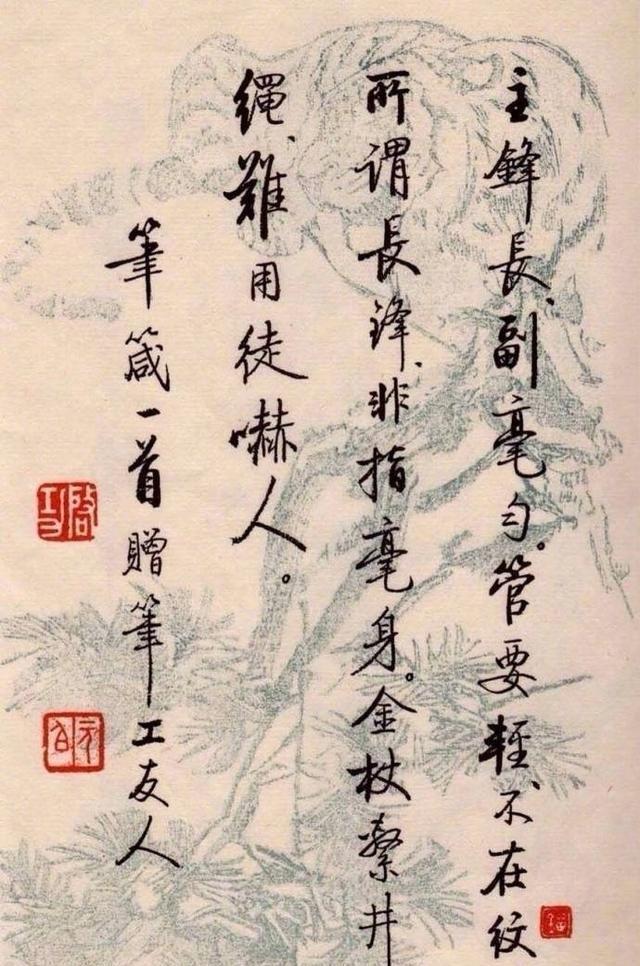 主鋒長、副毫勻。管要輕不在紋
所謂長鋒、非指毫身。金杖繫井
繩、難用徒嚇人。
筆箴一首贈筆工友人
啓功